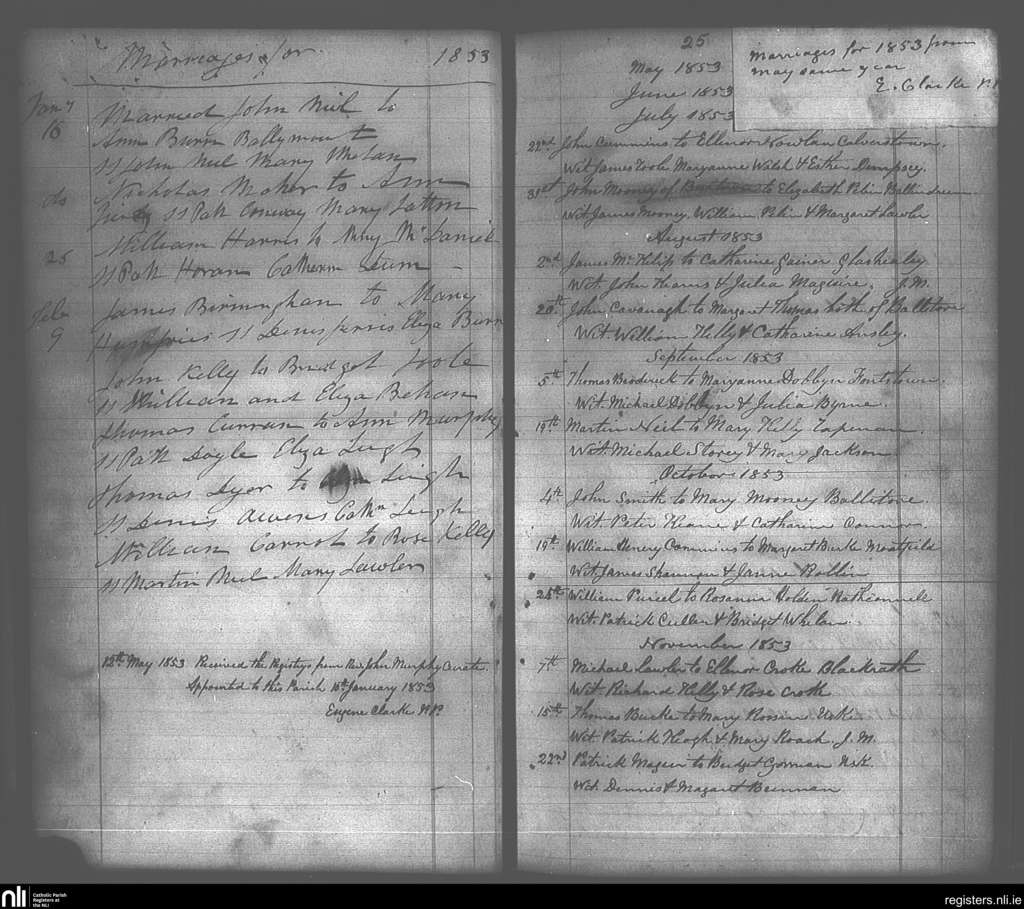 Marriages for 1853
Jany 16 Married John Niel to
Ann Burn Ballymount
SS John Niel Mary Phelan
do Nicholas Maher to Ann
SS Patk Conway Mary Latton
25 William Harris to Mary McDaniel
SS Patk Horan Catherin
Feb 9 James Birmingham to Mary
Humfries SS Denis Eliza Burn
John Kelly to Bridget Toole
SS William and Eliza Behan
Thomas Curran to Ann Murphy
SS Patk Doyle Eliza Leigh
Thomas Dyer to Leigh
SS Denis Cathn Leigh
William Carrot to Rose Kelly
SS Martin Niel Mary Lawler
12th May 1853 Received the Registrys from Revd John Murphy Curate
Appointed to this Parish 15th January 1853
Eugene Clarke P.P.
25
Marriages for 1853 from
may same year
E. Clarke P.P.
May 1853
June 1853
July 1853
22nd John Cummins to Ellenor Nowlan Calverstown.
Wit James Toole Maryanne Walsh & Esther Dempsey.
31st John Mooney of to Elizabeth
Wit James Mooney, William & Margaret Lawler
August 1853
2nd James McKilip to Catharine Gainer Glashealy
Wit. John Kearns & Julia Maguire. J.M.
20th John Cavanagh to Margaret Thomas both of Ballitore
Wit. William Kelly & Catharine Ansley.
September 1853
5th Thomas Broderick to Maryanne Dobbyn Fontstown.
Wit. Michael Dobbyn & Julia Byrne.
19th Martin Neil to Mary Kelly
Wit. Michael Storey & Mary Jackson
October 1853
4th John Smith to Mary Mooney Ballitore
Wit. Peter Keane & Catharine Connor.
19th William Henery Commins to Margaret Burke Moatfield
Wit James Shannon & Janne Rollin
24th William Pursel to Rosanna Holden Rathconnell
Wit. Patrick Cullen & Bridget Whelan.
November 1853
7th Michael Lawler to Ellenor Croke Blackrath
Wit. Richard Kelly & Rose Croke
15th Thomas Burke to Mary
Wit. Patrick Keogh & Mary Roach J.M.
22nd Patrick Magur to Bridget Gorman
Wit. Dennis & Magaret Brennan
nli
Catholic Parish
Registers at
the NLI
registers.nli.ie